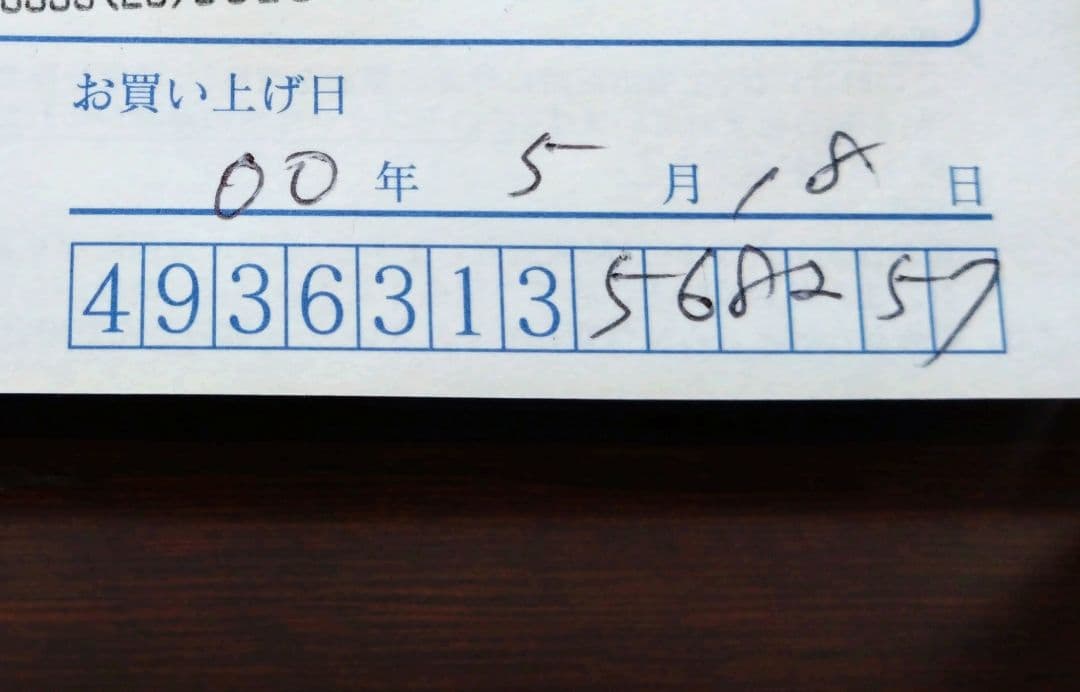 お買い上げ日
00年 5月 18日
4936313568257